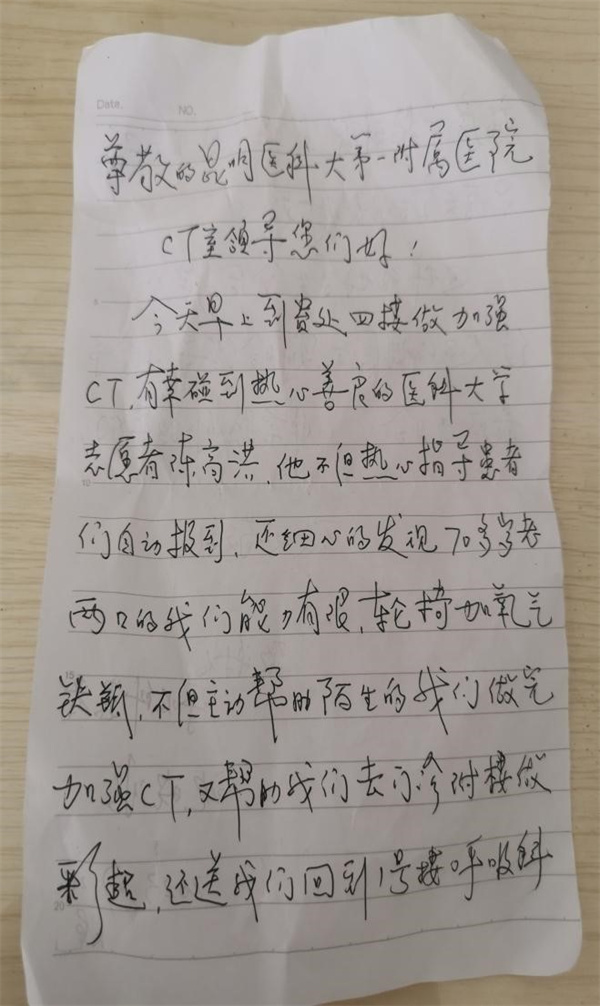 Date.
NO.
尊敬的昆明医科大第一附属医院
CT室领导您们好!
今天早上到贵处四楼做加强
CT,有幸碰到热心善良的医科大学
志愿者陈高洪,他不但热心指导患者
们自动报到,还细心的发现70多岁老
两口的我们能力有限,轮椅加氧气
铁瓶,不但主动帮助陌生的我们做完
加强CT,又帮助我们去门诊附楼做
彩超,还送我们回到1号楼呼吸科